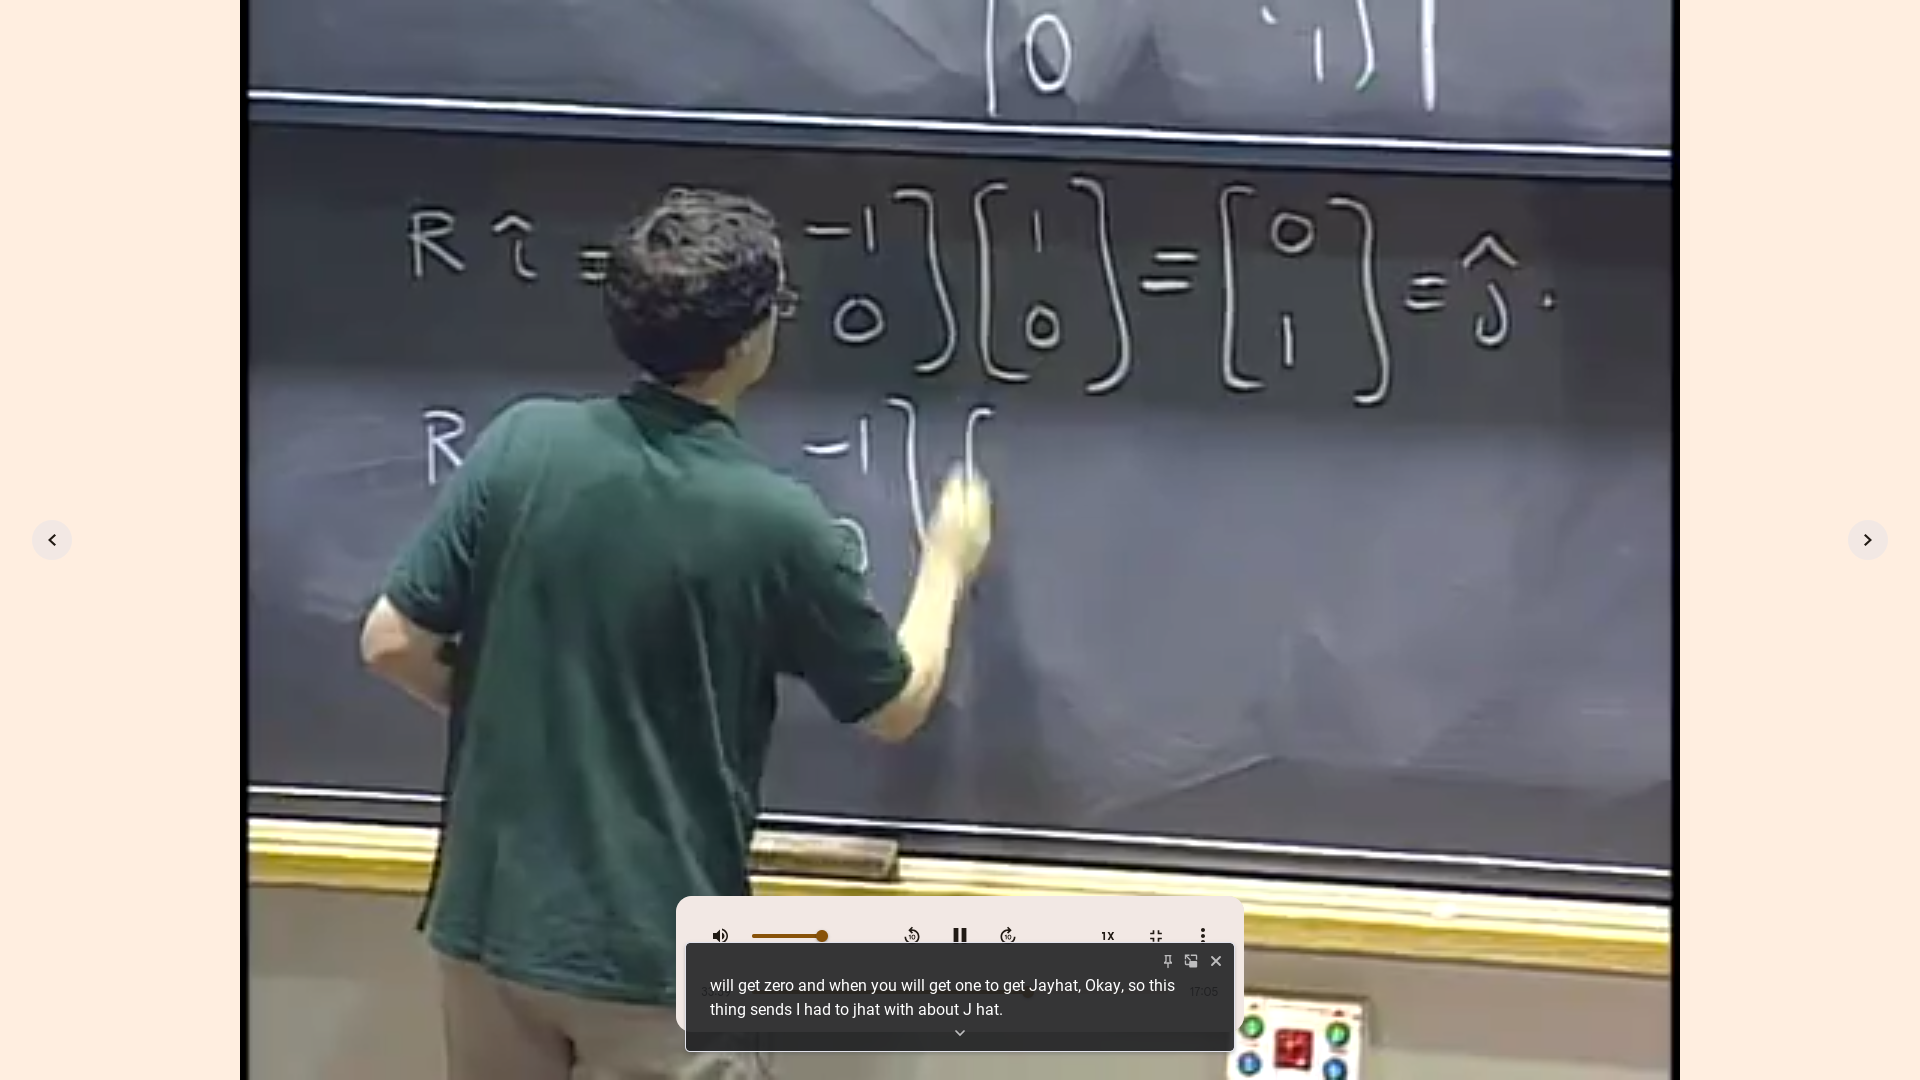 0 1
R î = -1 ] [ 1 ] = [ 0 ] = ĵ.
0 0 1
R -1 ] [
0
10 10 1X
will get zero and when you will get one to get Jayhat, Okay, so this
17:05
thing sends I had to jhat with about J hat.